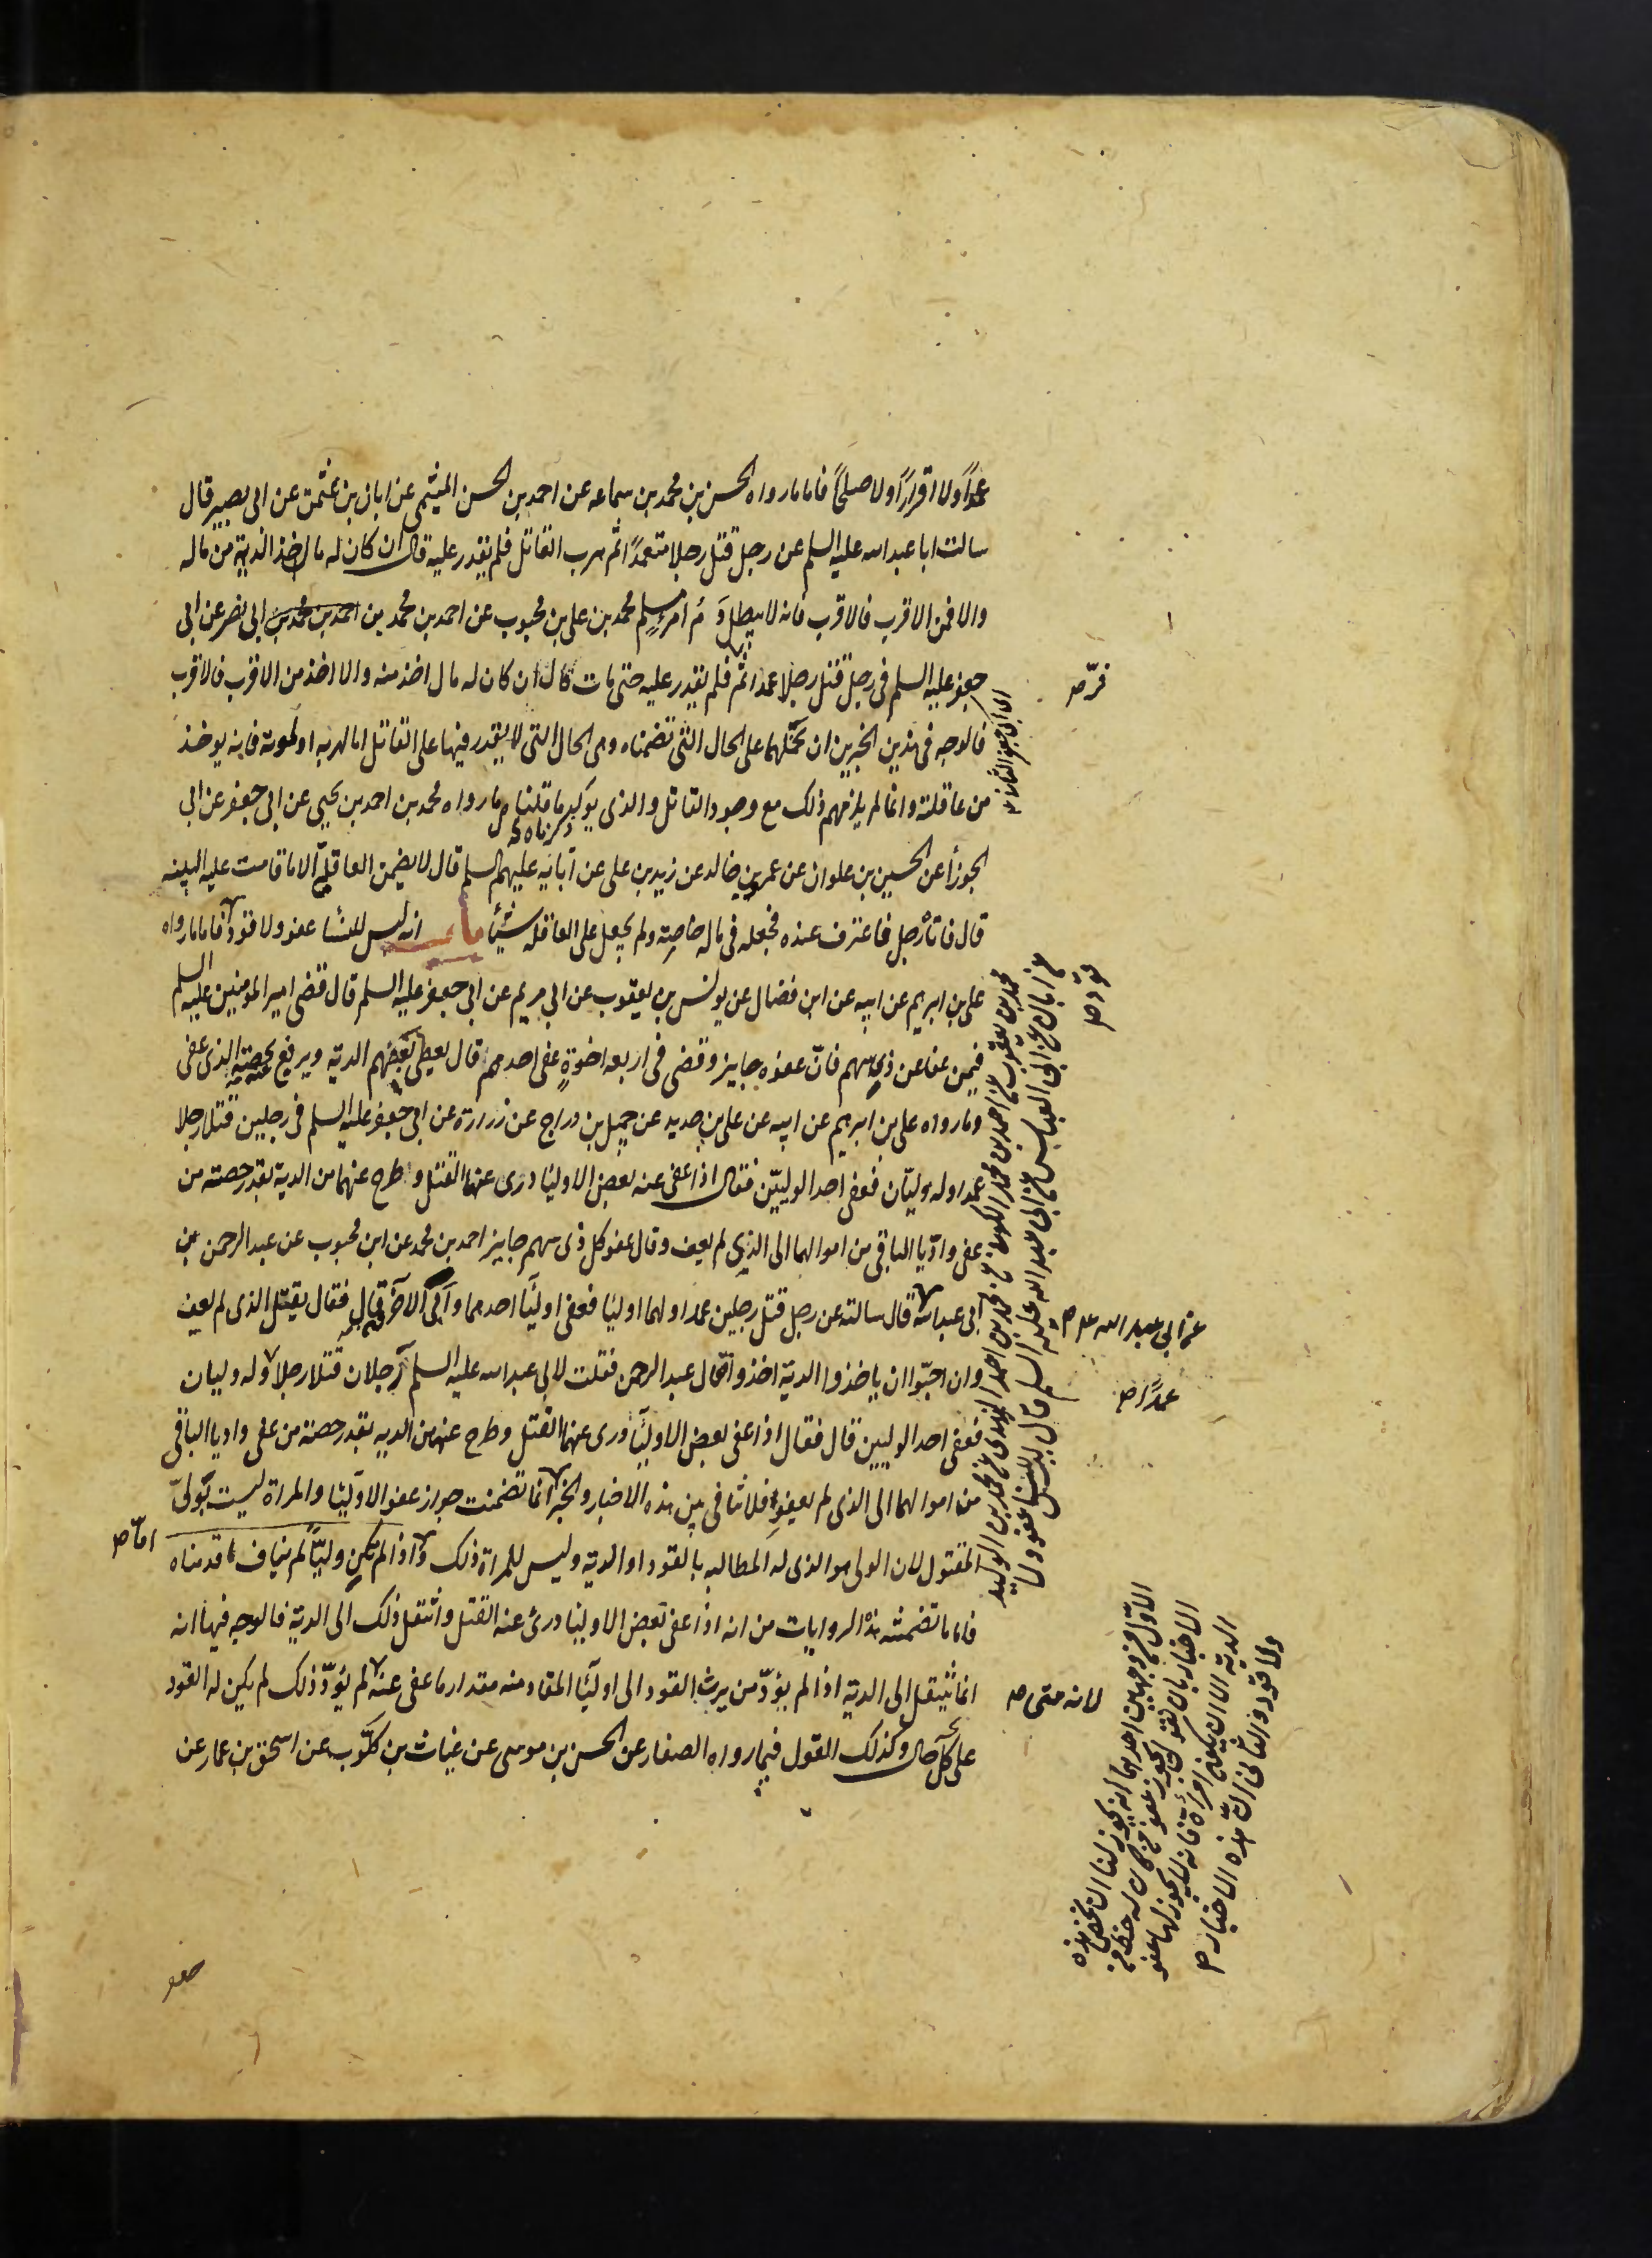 عمداً ولا اقراراً ولا صلحاً فاما ما رواه الحسن بن محمد بن سماعه عن احمد بن الحسن الميثمي عن ابان بن عثمن عن ابي بصير قال
سالت ابا عبد الله عليه السلم عن رجل قتل رجلا متعمداً ثم هرب القاتل فلم يقدر عليه قال ان كان له مال اخذ الدية من ماله
والا فمن الاقرب فالاقرب فانه لا يبطل دم امرءٍ مسلم محمد بن علي بن محبوب عن احمد بن محمد بن احمد بن محمد بن ابي نصر عن ابي
جعفر عليه السلم في رجل قتل رجلا عمدا ثم فلم يقدر عليه حتى مات قال ان كان له مال اخذ منه والا اخذ من الاقرب فالاقرب
فرّ صح
فالوجه في هذين الخبرين ان نحملهما على الحال التي تضمناه وهي الحال التي لا يقدر فيها على القاتل اما لهربه او لموته فانه يوخذ
من عاقلته وانما لم يلزمهم ذلك مع وجود القاتل والذي يوكد ما قلناه ما رواه محمد بن احمد بن يحيى عن ابي جعفر عن ابي
ذكرناه
الجوزا عن الحسين بن علوان عن عمرو بن خالد عن زيد بن علي عن آبائه عليهم السلم قال لا يضمن العاقلة الا ما قامت عليه البينه
قال فاتاه رجل فاعترف عنده فجعله في ماله خاصة ولم يجعل على العاقله شيئا باب انه ليس للنسا عفو ولا قود فاما ما رواه
علي بن ابرهيم عن ابيه عن ابن فضال عن يونس بن يعقوب عن ابي مريم عن ابي جعفر عليه السلم قال قضى امير المومنين عليه السلم
فيمن عفا عن ذي سهم فانّ عفوه جايز وقضى في اربعه اخوةٍ عفى احدهم قال يعطى بعضهم الدية ويرفع بحصته الذي عفى
وما رواه علي بن ابرهيم عن ابيه عن علي بن حديد عن جميل بن دراج عن زرارة عن ابي جعفر عليه السلم في رجلين قتلا رجلا
عمدا وله وليّان فعفى احد الوليّين فقال اذا عفى عنه بعض الاوليا درى عنهما القتل وطرح عنهما من الدية بقدر حصته من
عفى وادّيا الباقي من اموالهما الى الذي لم يعف وقال عفو كل ذي سهم جايز احمد بن محمد عن ابن محبوب عن عبد الرحمن عن
ابي عبد الله قال سالته عن رجل قتل رجلين عمدا ولهما اوليا فعفى اوليا احدهما وابى الآخرون قال فقال يقتل الذي لم يعف
عن ابي عبد الله ع صح
وان احبّوا ان ياخذوا الدية اخذوا قال عبد الرحمن فقلت لابي عبد الله عليه السلم رجلان قتلا رجلا وله وليان
عمداً صح
فعفى احد الوليين قال فقال اذا عفى بعض الاوليا درى عنهما القتل وطرح عنهما من الديه بقدر حصته من عفى واديا الباقي
من اموالهما الى الذي لم يعفو فلا تنافي بين هذه الاخبار والخبر انما تضمنت جواز عفو الاوليا والمراة ليست بولىّ
المقتول لان الولى هو الذي له المطالبه بالقود او الدية وليس للمراة ذلك واذا لم تكن وليّاً لم يناف ما قدمناه
امّا صح
فاما ما تضمنته هذه الروايات من انه اذا عفى بعض الاوليا درئ عنه القتل وانتقل ذلك الى الدية فالوجه فيها انه
انما ينتقل الى الدية اذا لم يؤدّ من يريد القود الى اوليا المقاد منه مقدار ما عفى عنه لم يؤدّ ذلك لم يكن له القود
لانه متى صح
على كل حال وكذلك القول فيما رواه الصفار عن الحسن بن موسى عن غياث بن كلّوب عن اسحق بن عمار عن
محمد بن يعقوب عن احمد بن محمد الكوفي عن محمد بن احمد النهدي عن محمد بن الوليد
عن ابان عن ابي العباس عن ابي عبد الله عليه السلم قال ليس للنسا عفو ولا
قود صح
الاوّل من وجهين احدهما انه يجوز لنا ان نخص هذه
الاخبار بان نقول يجوز عفو من كان له حظ من
الدية الا ان يكون امراة فانه لا يجوز لها عفو
ولا قود والثاني انّ هذه الاخبار صح